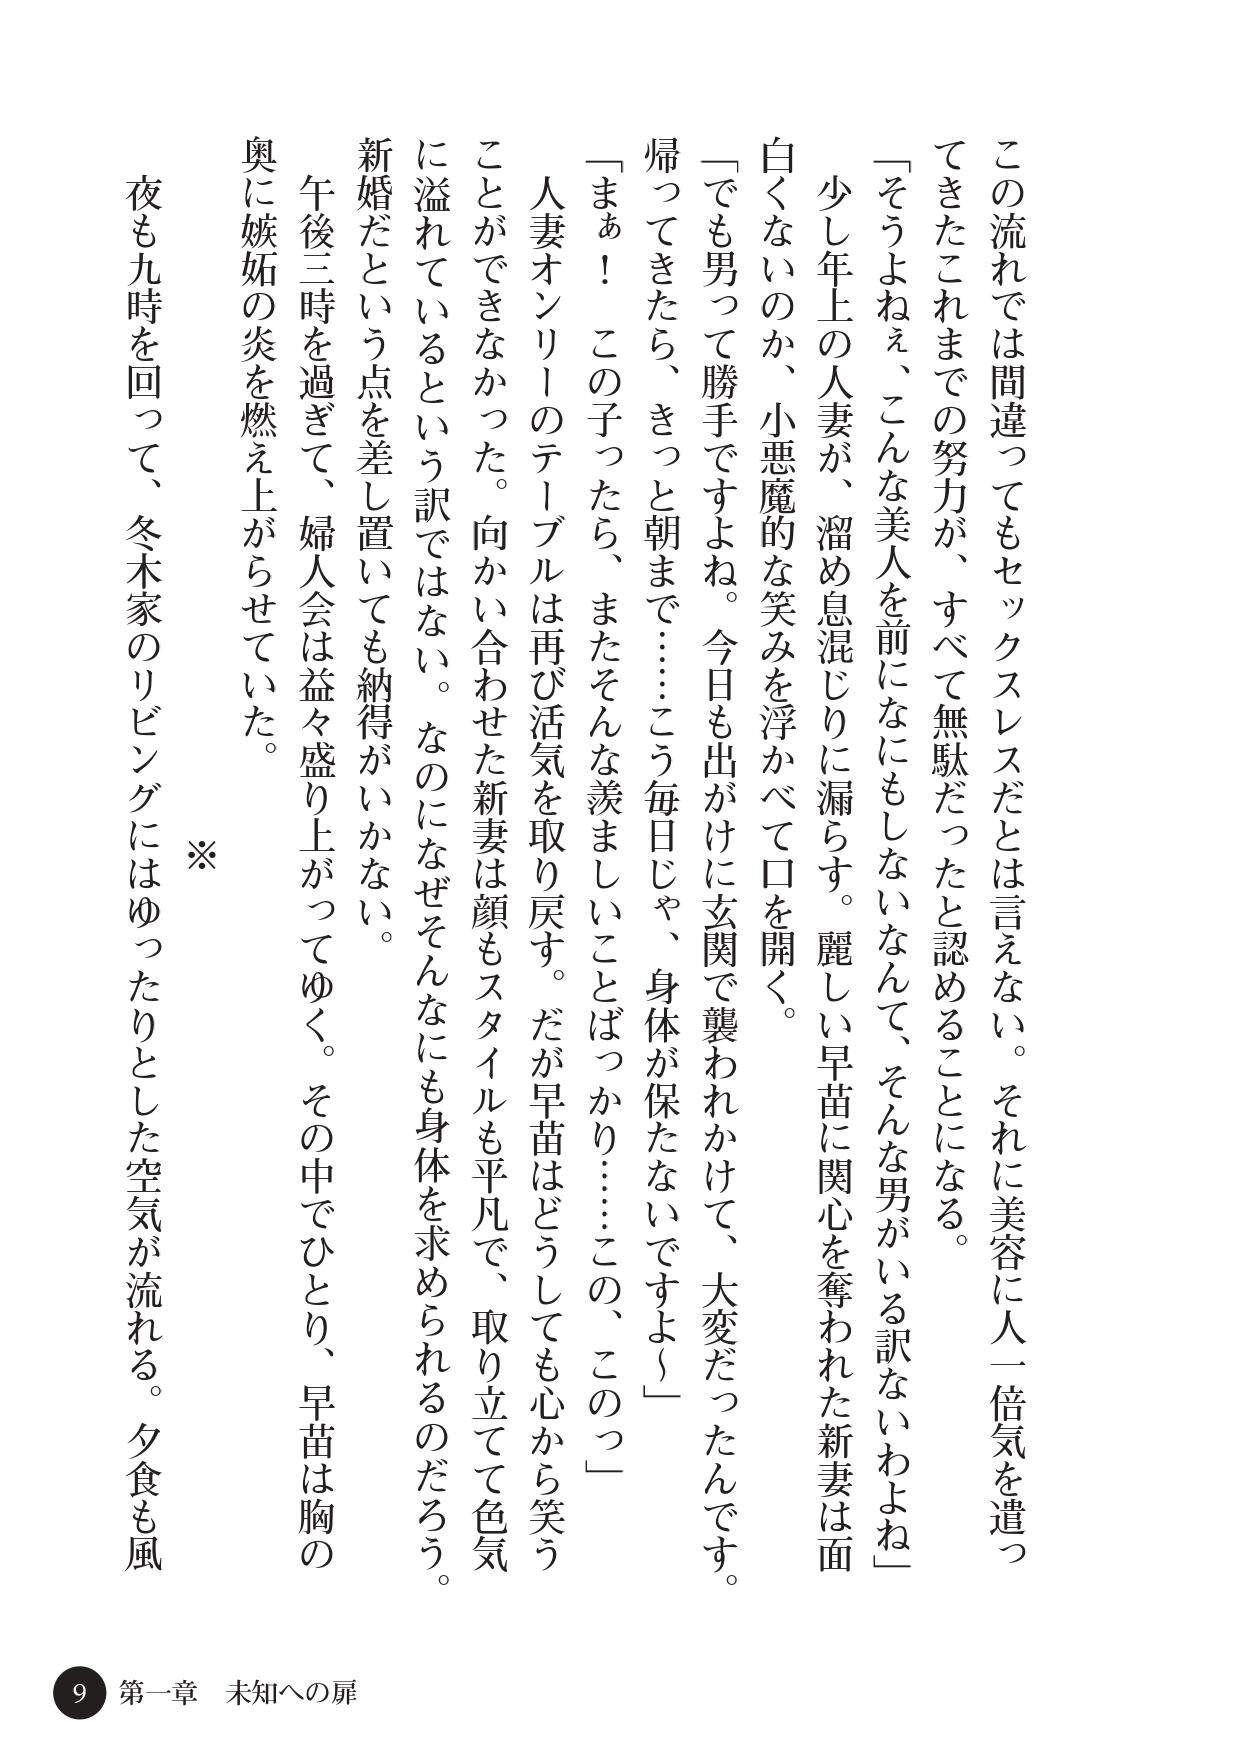 この流れでは間違ってもセックスレスだとは言えない。それに美容に人一倍気を遣っ
てきたこれまでの努力が、すべて無駄だったと認めることになる。
「そうよねぇ、こんな美人を前になにもしないなんて、そんな男がいる訳ないわよね」
　少し年上の人妻が、溜め息混じりに漏らす。麗しい早苗に関心を奪われた新妻は面
白くないのか、小悪魔的な笑みを浮かべて口を開く。
「でも男って勝手ですよね。今日も出がけに玄関で襲われかけて、大変だったんです。
帰ってきたら、きっと朝まで……こう毎日じゃ、身体が保たないですよ～」
「まぁ！　この子ったら、またそんな羨ましいことばっかり……この、このっ」
　人妻オンリーのテーブルは再び活気を取り戻す。だが早苗はどうしても心から笑う
ことができなかった。向かい合わせた新妻は顔もスタイルも平凡で、取り立てて色気
に溢れているという訳ではない。なのになぜそんなにも身体を求められるのだろう。
新婚だという点を差し置いても納得がいかない。
　午後三時を過ぎて、婦人会は益々盛り上がってゆく。その中でひとり、早苗は胸の
奥に嫉妬の炎を燃え上がらせていた。
※
　夜も九時を回って、冬木家のリビングにはゆったりとした空気が流れる。夕食も風
9 第一章　未知への扉